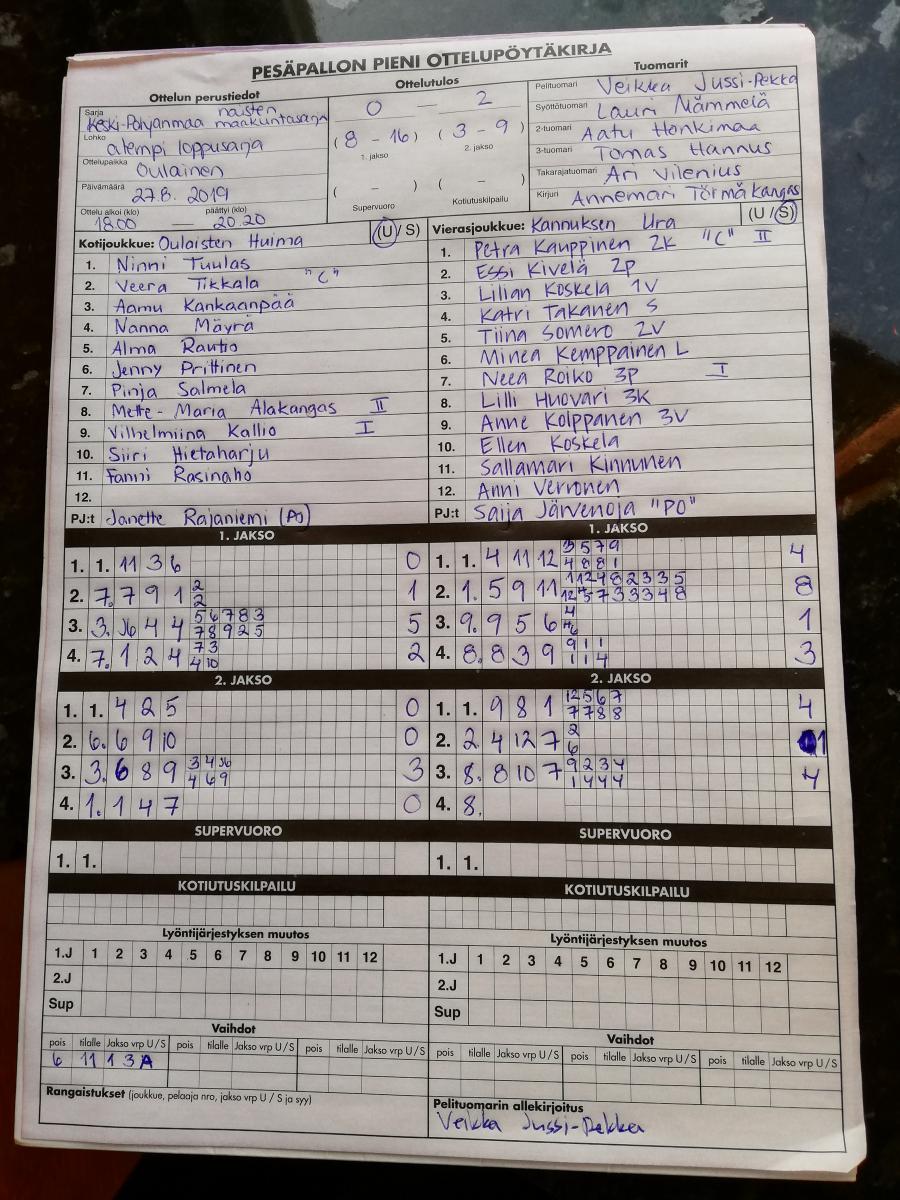 PESÄPALLON PIENI OTTELUPÖYTÄKIRJA
Ottelun perustiedot
Sarja naisten
Keski-Pohjanmaa maakuntasarja
Lohko alempi loppusarja
Ottelupaikka Oulainen
Päivämäärä 27.8. 2019
Ottelu alkoi (klo) päättyi (klo)
18.00 — 20.20
Ottelutulos
0 - 2
(8 - 16) (3 - 9)
1. jakso 2. jakso
( - ) ( - )
Supervuoro Kotiutuskilpailu
Tuomarit
Pelituomari Veikka Jussi-Pekka
Syöttötuomari Lauri Nämmelä
2-tuomari Aatu Honkimaa
3-tuomari Tomas Hannus
Takarajatuomari Ari Vilenius
Kirjuri Annemari Törmäkangas
Kotijoukkue: Oulaisten Huima (U / S)
1. Ninni Tuulas
2. Veera Tikkala "C"
3. Aamu Kankaanpää
4. Nanna Mäyrä
5. Alma Rautio
6. Jenny Prittinen
7. Pinja Salmela
8. Mette-Maria Alakangas II
9. Vilhelmiina Kallio I
10. Siiri Hietaharju
11. Fanni Rasinaho
12.
PJ:t Janette Rajaniemi (PO)
Vierasjoukkue: Kannuksen Ura (U / S)
1. Petra Kauppinen 2K "C" II
2. Essi Kivelä 2p
3. Lilian Koskela 1V
4. Katri Takanen S
5. Tiina Somero 2V
6. Minea Kemppainen L
7. Neea Roiko 3P I
8. Lilli Huovari 3K
9. Anne Kolppanen 3V
10. Ellen Koskela
11. Sallamari Kinnunen
12. Anni Verronen
PJ:t Saija Järvenoja "PO"
1. JAKSO
1. 1. 11 3 6 0
2. 7. 7 9 1 2 1
2
3. 3. 4 4 5 6 7 8 3 5
7 8 9 2 5
4. 7. 1 2 4 7 3 2
4 10
1. JAKSO
1. 1. 4 11 12 3 5 7 9 4
4 8 8 1
2. 1. 5 9 11 11 2 4 8 2 3 3 5 8
5 7 3 3 3 4 8
3. 9. 9 5 6 4 1
4. 8. 8 3 9 9 1 1 3
1 1 4
2. JAKSO
1. 1. 4 2 5 0
2. 6. 6 9 10 0
3. 3. 6 8 9 3 4 3
4 6 9
4. 1. 1 4 7 0
2. JAKSO
1. 1. 9 8 1 12 5 6 7 4
7 7 8 8
2. 2 4 12 7 2 1
6
3. 8. 8 10 7 9 2 3 4 4
1 4 4 4
4. 8.
SUPERVUORO
1. 1.
SUPERVUORO
1. 1.
KOTIUTUSKILPAILU
KOTIUTUSKILPAILU
Lyöntijärjestyksen muutos
1.J 1 2 3 4 5 6 7 8 9 10 11 12
2.J
Sup
Lyöntijärjestyksen muutos
1.J 1 2 3 4 5 6 7 8 9 10 11 12
2.J
Sup
Vaihdot
pois tilalle Jakso vrp U / S pois tilalle Jakso vrp U / S pois tilalle Jakso vrp U / S
6 11 1 3 A
Vaihdot
pois tilalle Jakso vrp U / S pois tilalle Jakso vrp U / S pois tilalle Jakso vrp U / S
Rangaistukset (joukkue, pelaaja nro, jakso vrp U / S ja syy)
Pelituomarin allekirjoitus
Veikka Jussi-Pekka